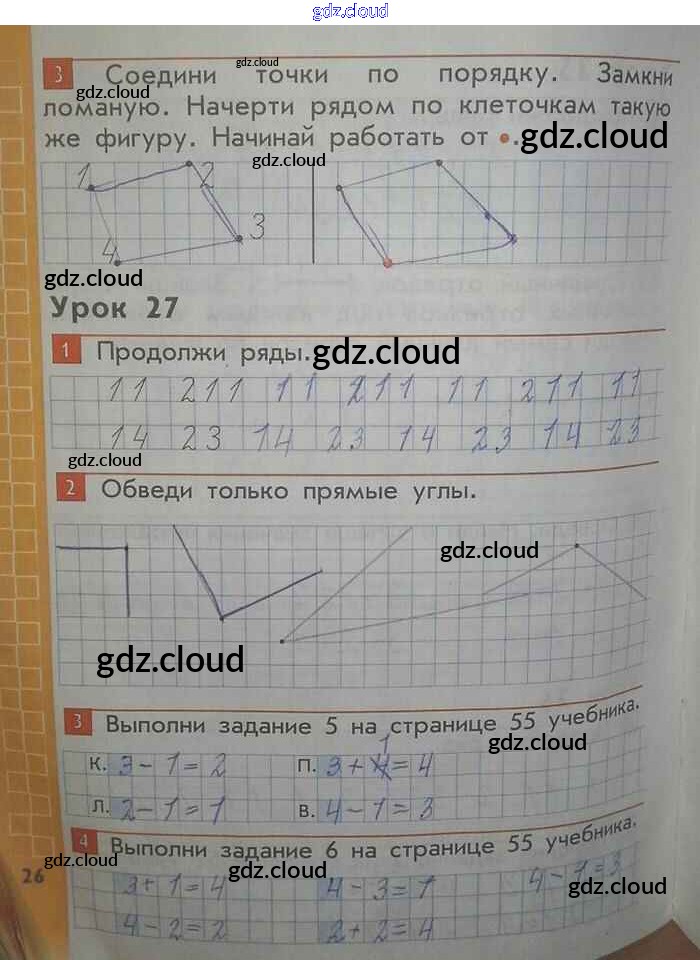 gdz.cloud
3 Соедини точки по порядку. Замкни
gdz.cloud
ломаную. Начерти рядом по клеточкам такую
же фигуру. Начинай работать от .
gdz.cloud
gdz.cloud
1 2
3
4
gdz.cloud
Урок 27
1 Продолжи ряды.
gdz.cloud
11 211 11 211 11 211 11
14 23 14 23 14 23 14 23
gdz.cloud
2 Обведи только прямые углы.
gdz.cloud
gdz.cloud
3 Выполни задание 5 на странице 55 учебника.
gdz.cloud
1
К. 3 - 1 = 2 П. 3 + 4 = 4
Л. 2 - 1 = 1 В. 4 - 1 = 3
4 Выполни задание 6 на странице 55 учебника.
gdz.cloud
gdz.cloud
gdz.cloud
26
3 + 1 = 4 4 - 3 = 1 4 - 1 = 3
4 - 2 = 2 2 + 2 = 4